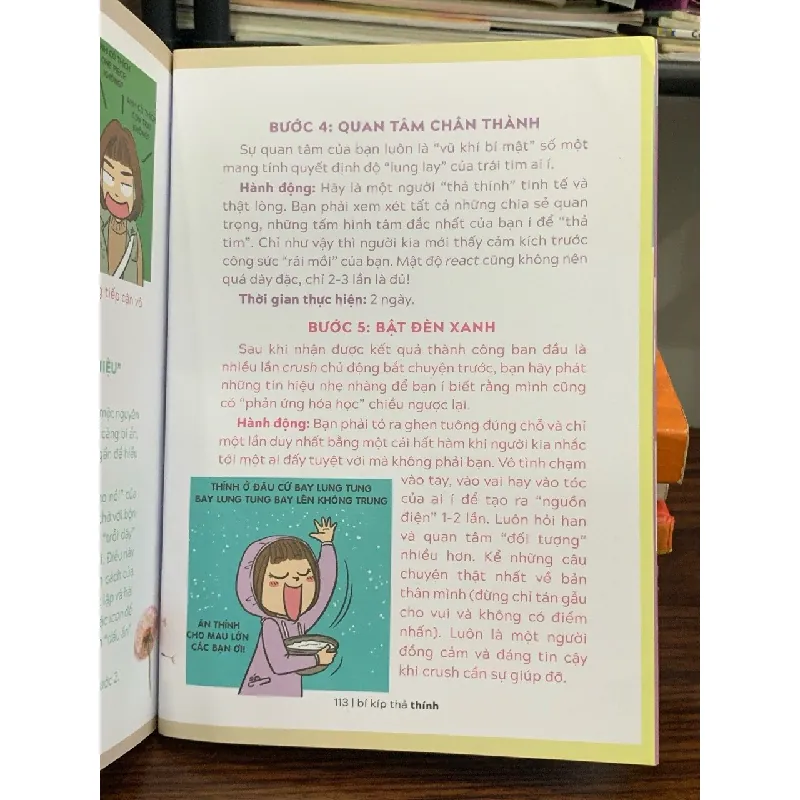 BƯỚC 4: QUAN TÂM CHÂN THÀNH
Sự quan tâm của bạn luôn là “vũ khí bí mật” số một
mang tính quyết định độ “lung lay” của trái tim ai í.
Hành động: Hãy là một người “thả thính” tinh tế và
thật lòng. Bạn phải xem xét tất cả những chia sẻ quan
trọng, những tấm hình tâm đắc nhất của bạn í để “thả
tim”. Chỉ như vậy thì người kia mới thấy cảm kích trước
công sức “rải mồi” của bạn. Mật độ react cũng không nên
quá dày đặc, chỉ 2-3 lần là đủ!
Thời gian thực hiện: 2 ngày.
BƯỚC 5: BẬT ĐÈN XANH
Sau khi nhận được kết quả thành công ban đầu là
nhiều lần crush chủ động bắt chuyện trước, bạn hãy phát
những tín hiệu nhẹ nhàng để bạn í biết rằng mình cũng
có “phản ứng hóa học” chiều ngược lại.
Hành động: Bạn phải tỏ ra ghen tuông đúng chỗ và chỉ
một lần duy nhất bằng một cái hất hàm khi người kia nhắc
tới một ai đấy tuyệt vời mà không phải bạn. Vô tình chạm
vào tay, vào vai hay vào tóc
của ai í để tạo ra “nguồn
điện” 1-2 lần. Luôn hỏi han
và quan tâm “đối tượng”
nhiều hơn. Kể những câu
chuyện thật nhất về bản
thân mình (đừng chỉ tán gẫu
cho vui và không có điểm
nhấn). Luôn là một người
đồng cảm và đáng tin cậy
khi crush cần sự giúp đỡ.
THÍNH Ở ĐÂU CỨ BAY LUNG TUNG
BAY LUNG TUNG BAY LÊN KHÔNG TRUNG
ĂN THÍNH
CHO MAU LỚN
CÁC BẠN ƠI!
113 | bí kíp thả thính